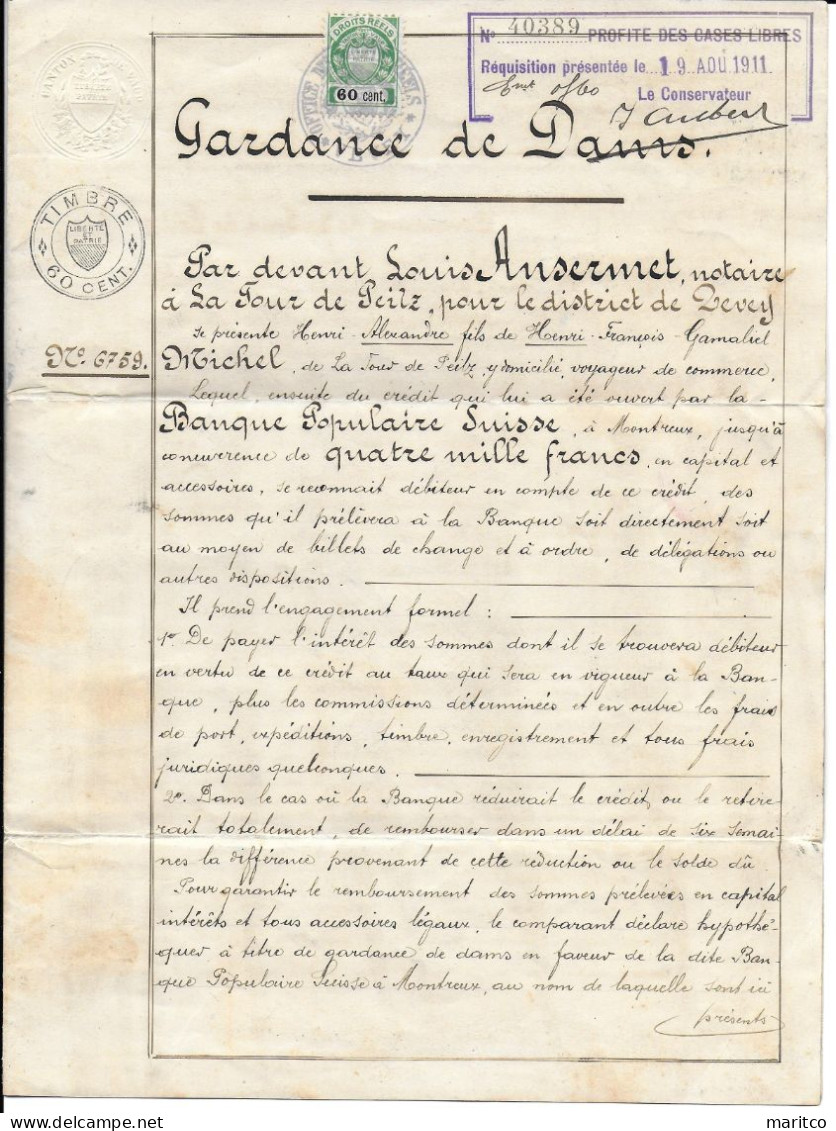 CANTON DE VAUD
LIBERTÉ ET PATRIE
DROITS RÉELS
LIBERTÉ ET PATRIE
60 cent.
No 40389 PROFITE DES CASES LIBRES
Réquisition présentée le 19 AOU 1911
Le Conservateur
Gardance de Dams.
TIMBRE
LIBERTÉ
ET
PATRIE
60 CENT.
Par devant Louis Ansermet, notaire
à La Tour de Peilz, pour le district de Vevey
se présente Henri-Alexandre fils de Henri-François-Gamaliel
No. 6759.
Michel, de La Tour de Peilz, y domicilié, voyageur de commerce,
Lequel, ensuite du crédit qui lui a été ouvert par la
Banque Populaire Suisse, à Montreux, jusqu'à
concurrence de quatre mille francs, en capital et
accessoires, se reconnait débiteur en compte de ce crédit, des
sommes qu'il prélèvera à la Banque soit directement soit
au moyen de billets de change et à ordre, de délégations ou
autres dispositions.
Il prend l'engagement formel :
1o. De payer l'intérêt des sommes dont il se trouvera débiteur
en vertu de ce crédit au taux qui sera en vigueur à la Ban-
que, plus les commissions déterminées et en outre les frais
de port, expéditions, timbre, enregistrement et tous frais
juridiques quelconques.
2o. Dans le cas où la Banque réduirait le crédit, ou le retire-
rait totalement, de rembourser dans un délai de six semai-
nes la différence provenant de cette réduction ou le solde dû.
Pour garantir le remboursement des sommes prélevées en capital
intérêts et tous accessoires légaux, le comparant déclare hypothé-
quer à titre de gardance de dams en faveur de la dite Ban-
que Populaire Suisse à Montreux, au nom de laquelle sont ici
présents
maritco